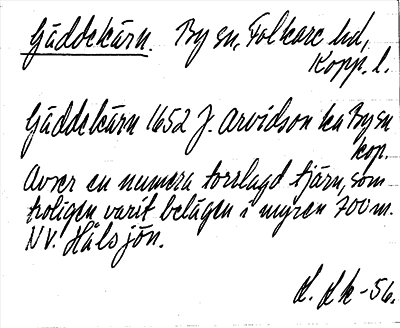 Gäddekärn. By sn, Folkare hd,
Kopp. l.
Gäddekärn 1652 J. Arvidson ka By sn
kop.
Avser en numera torrlagd tjärn, som
troligen varit belägen i myren 700 m.
NV. Hålsjön.
d. dk -56.